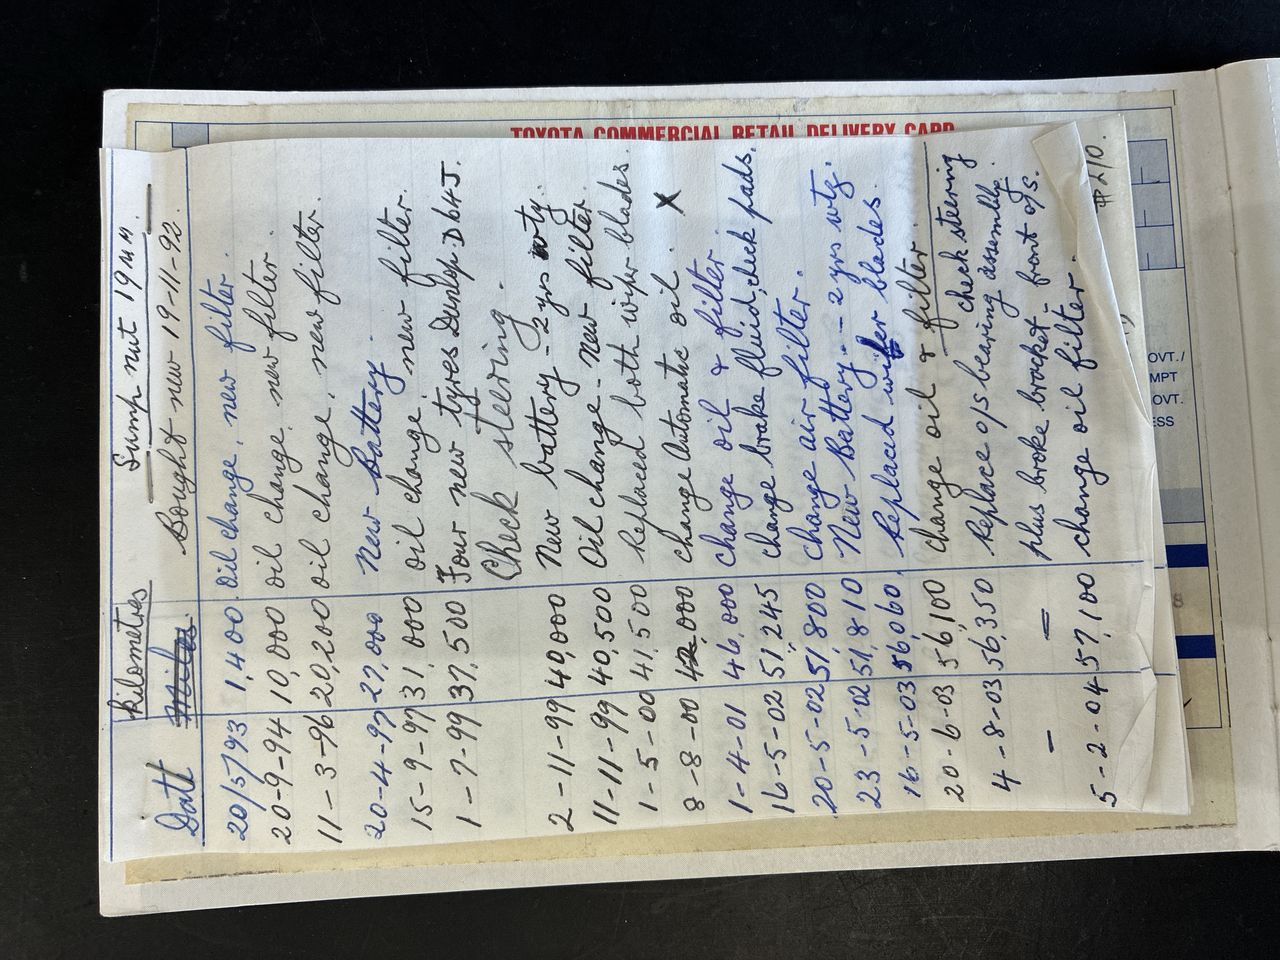 TOYOTA COMMERCIAL RETAIL DELIVERY CARD
kilometres Sump nut 19 mm
Date Miles Bought new 19-11-92
20/5/93 1,400 Oil change. new filter.
20-9-94 10,000 oil change. new filter.
11-3-96 20,200 oil change. new filter.
20-4-97 27,000 New Battery.
15-9-97 31,000 oil change. new filter.
1-7-99 37,500 Four new tyres Dunlop. D64J.
Check steering.
2-11-99 40,000 New battery - 2 yrs wty.
11-11-99 40,500 Oil change - new filter.
1-5-00 41,500 Replaced both wiper blades.
8-8-00 42,000 change Automatic oil. X
1-4-01 46,000 Change oil & filter
16-5-02 51,245 change brake fluid, check pads.
20-5-02 51,800 change air filter.
23-5-02 51,810 New Battery. - 2 yrs wty.
16-5-03 56,060. Replaced wiper blades.
20-6-03 56,100 change oil & filter.
check steering
4-8-03 56,350 Replace o/s bearing assembly.
- - plus broke bracket - front o/s.
5-2-04 57,100 change oil filter. $210.
OVT./
MPT
OVT.
ESS